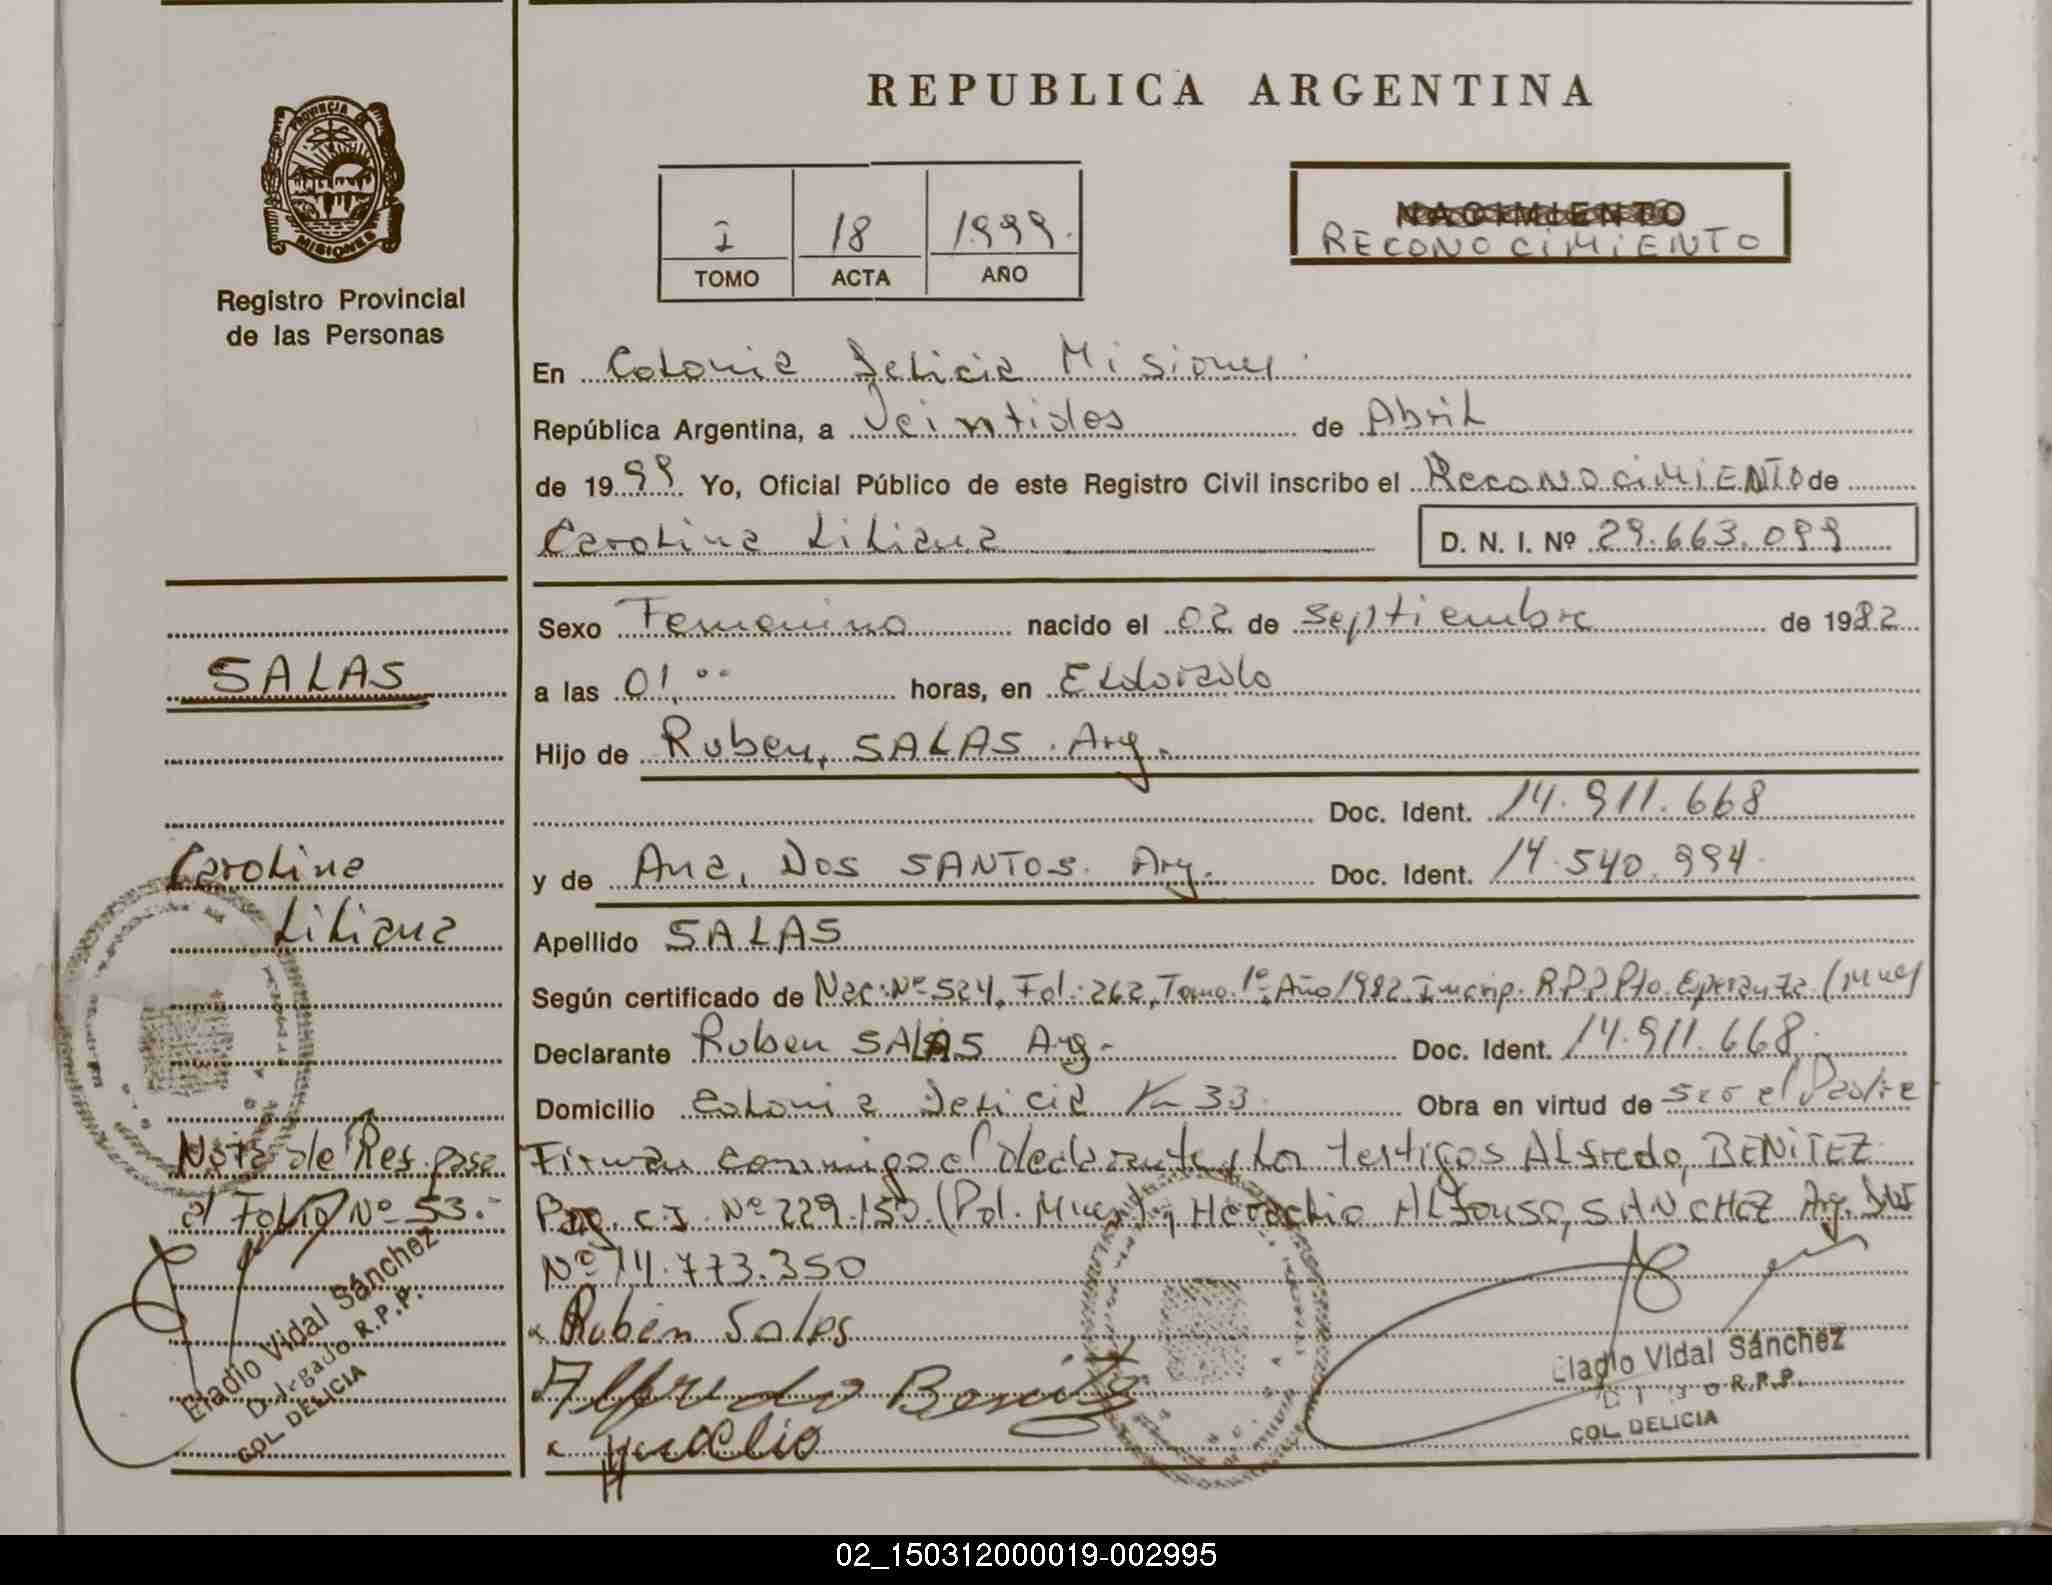 REPUBLICA ARGENTINA
PROVINCIA DE
MISIONES
Registro Provincial
de las Personas
I 18 1999.
TOMO ACTA AÑO
NACIMIENTO
RECONOCIMIENTO
En Colonia Delicia Misiones.
República Argentina, a Veintidos de Abril
de 1999 Yo, Oficial Público de este Registro Civil inscribo el Reconocimiento de
Carolina Liliana D. N. I. Nº 29.663.099
Sexo Femenino nacido el 02 de Septiembre de 1982
a las 01,°° horas, en Eldorado
Hijo de Ruben, SALAS. Arg.
Doc. Ident. 14.911.668
y de Ana, DOS SANTOS. Arg. Doc. Ident. 14.540.994.
Apellido SALAS
Según certificado de Nac: Nº 524, Fol: 262, Tomo 1º, Año 1982 Inscrip. R.P.P Pto. Esperanza (Mnes)
Declarante Ruben SALAS Arg. Doc. Ident. 14.911.668.
Domicilio Colonia Delicia Km 33. Obra en virtud de ser el Padre
Firman conmigo el declarante y los testigos Alfredo, BENITEZ
C.I. Nº 229.150 (Pol. Mnes) y Alfonso, SANCHEZ Arg. DNI
Nº 14.773.350
Rubén Salas
Alfredo Benitez
Eladio Vidal Sánchez
R.P.P.
COL. DELICIA
SALAS
Carolina
Liliana
Nota de Ref. pasa
al Folio Nº 53.-
Eladio Vidal Sánchez
Delegado R.P.P.
COL. DELICIA
02_150312000019-002995